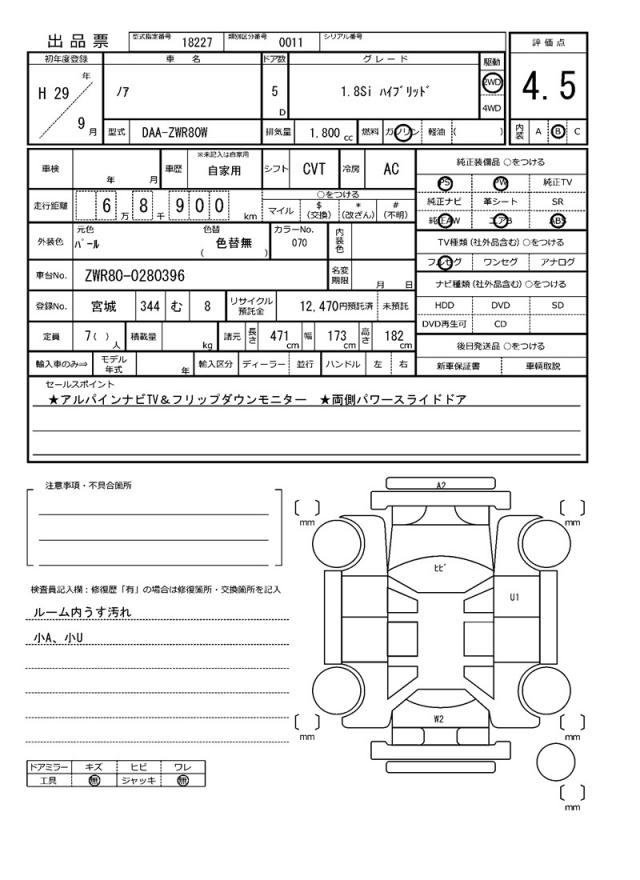 出品票 型式指定番号 18227 類別区分番号 0011 シリアル番号
初年度登録 車名 ドア数 グレード 駆動 評価点
H 29 年 9 月 ノア 5 D 1.8Si ハイブリッド 2WD 4WD 4.5
型式 DAA-ZWR80W 排気量 1.800 cc 燃料 ガソリン 軽油 ( ) 内装 A B C
車検 年 月 車歴 ※未記入は自家用 自家用 シフト CVT 冷房 AC 純正装備品 ○をつける
PS PW 純正TV
走行距離 6 万 8 千 9 0 0 km ○をつける マイル $(交換) *(改ざん) #(不明) 純正ナビ 革シート SR
純正AW エアB ABS
外装色 元色 パール 色替 色替無 ( ) カラーNo. 070 内装色 TV種類 (社外品含む) ○をつける
フルセグ ワンセグ アナログ
車台No. ZWR80-0280396 名変期限 月 日 ナビ種類 (社外品含む) ○をつける
登録No. 宮城 344 む 8 リサイクル預託金 12,470円預託済 未預託 HDD DVD SD
DVD再生可 CD
定員 7( ) 人 積載量 kg 諸元 長さ 471 cm 幅 173 cm 高さ 182 cm 後日発送品 ○をつける
輸入車のみ⇒ モデル年式 年 輸入区分 ディーラー 並行 ハンドル 左 右 新車保証書 車輌取説
セールスポイント
★アルパインナビTV＆フリップダウンモニター ★両側パワースライドドア
注意事項・不具合箇所
A2
mm mm
ヒビ
検査員記入欄：修復歴「有」の場合は修復箇所・交換箇所を記入
U1
ルーム内うす汚れ
小A、小U
W2
mm mm
ドアミラー キズ ヒビ ワレ
工具 無 ジャッキ 無
mm